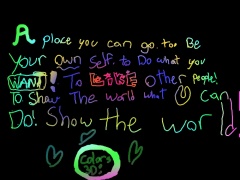 A place you can go. to. Be
Your own Self. to Do what you
WANT! To BE LIKE Other People!
To Show The world what I can
Do! Show the world!
Colors
3D!